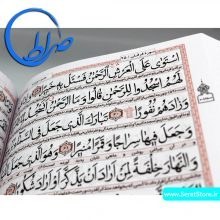 صراط
اسْتَوَىٰ عَلَى الْعَرْشِ الرَّحْمَٰنُ فَسْئَلْ بِهِ خَبِيرًا
لَهُمُ اسْجُدُوا لِلرَّحْمَٰنِ قَالُوا وَمَا الرَّحْمَٰنُ
وَزَادَهُمْ نُفُورًا تَبَارَكَ الَّذِي جَعَلَ فِي
وَجَعَلَ فِيهَا سِرَاجًا وَقَمَرًا مُنِيرًا وَهُوَ الَّذِي جَعَلَ
وَالنَّهَارَ خِلْفَةً لِمَنْ أَرَادَ أَنْ يَذَّكَّرَ أَوْ أَرَادَ شُكُورًا
www.SeratStore.ir